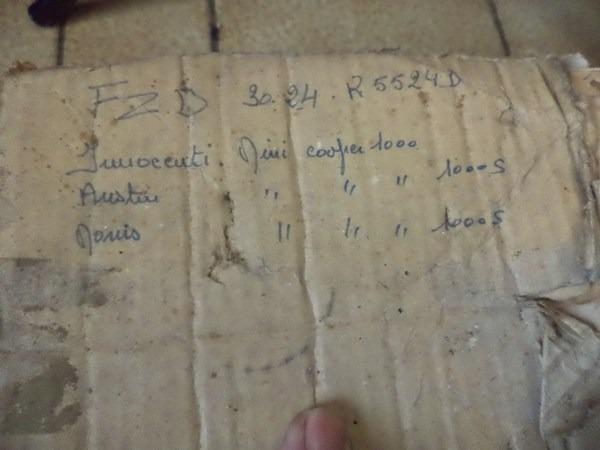 FZD 30.24. R5524D
Innocenti. Mini cooper 1000
Austin " " " 1000S
Moris " " " 1000S